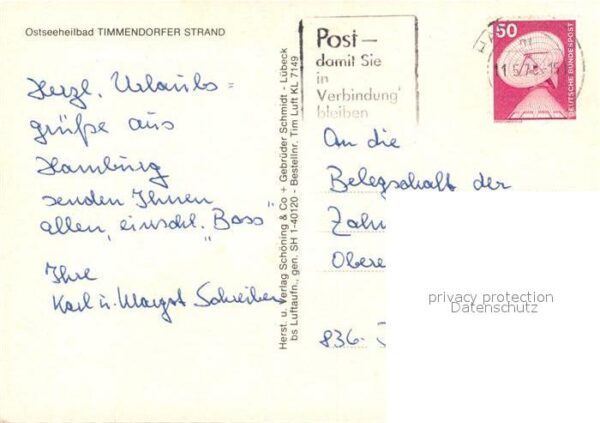 Ostseeheilbad TIMMENDORFER STRAND
Herzl. Urlaubs=
grüße aus
Hamburg
senden Ihnen
allen, einschl. "Boss"
Ihre
Karl u. Margot Schreiber
Herst. u. Verlag Schöning & Co + Gebrüder Schmidt - Lübeck
bs Luftaufn., gen. SH 1-40120 - Bestellnr. Tim Luft KL 7149
Post —
damit Sie
in
Verbindung
bleiben
50
DEUTSCHE BUNDESPOST
An die
Belegschaft der
Zahn
Obere
836-
privacy protection
Datenschutz